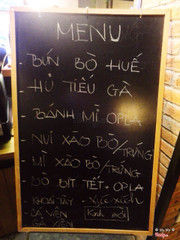 MENU
- BÚN BÒ HUẾ
- HỦ TIẾU GÀ
- BÁNH MÌ OPLA
- NUI XÀO BÒ/TRỨNG
- MÌ XÀO BÒ/TRỨNG
- BÒ BÍT TẾT - OPLA
- KHOAI TÂY - XÚC XÍCH
- CÁ VIÊN